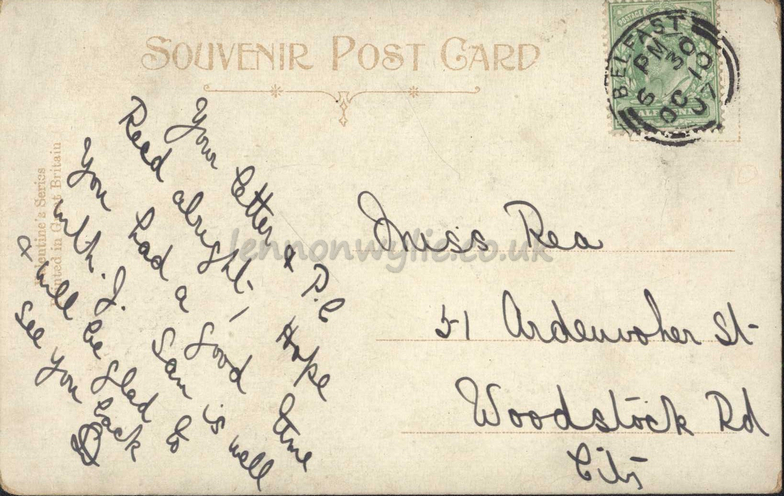 SOUVENIR POST CARD
BELFAST
6 30 PM
OC 10
07
HALFPENNY
Valentine's Series
Printed in Great Britain
Your letter & P.C
Recd alright, Hope
You had a good time
with J. Sam is well
& will be glad to
see you back
Miss Rea
51 Ardenvoher St
Woodstock Rd
City
lennonwylie.co.uk